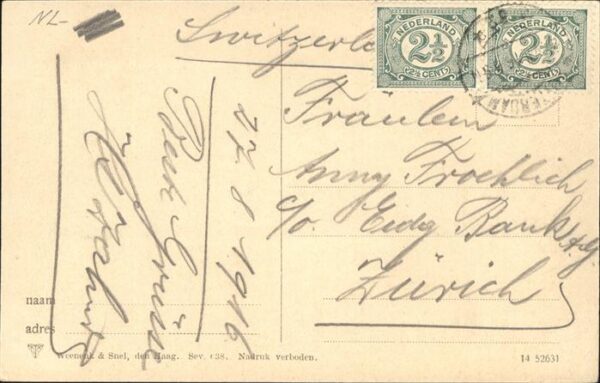 NL-
Switzerl
NEDERLAND
2½
(2½ CENT)
NEDERLAND
2½
(2½ CENT)
ERDAM
Fräulein
Anny Froehlich
c/o. Eidg Bank A.G.
Zürich
27 8 1916
Beste Grüsse
naam
adres
Weenenk & Snel, den Haag. Sev. 638. Nadruk verboden.
14 52631